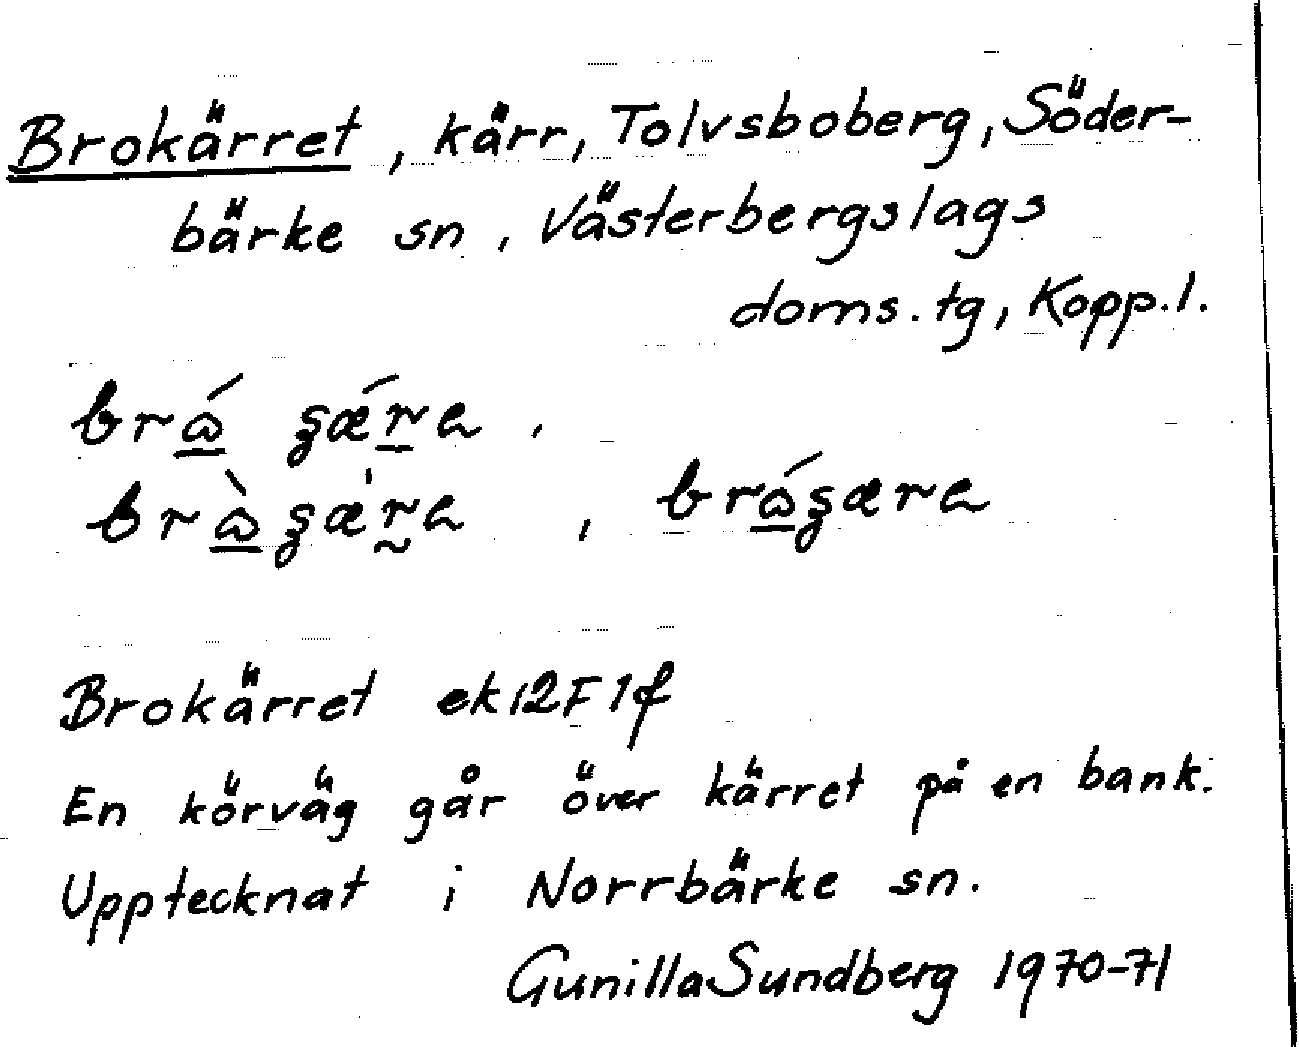 Brokärret, kärr, Tolvsboberg, Söder-
bärke sn, Västerbergslags
doms.tg, Kopp.l.
Brokärret ek 12F1f
En körväg går över kärret på en bank.
Upptecknat i Norrbärke sn.
Gunilla Sundberg 1970-71